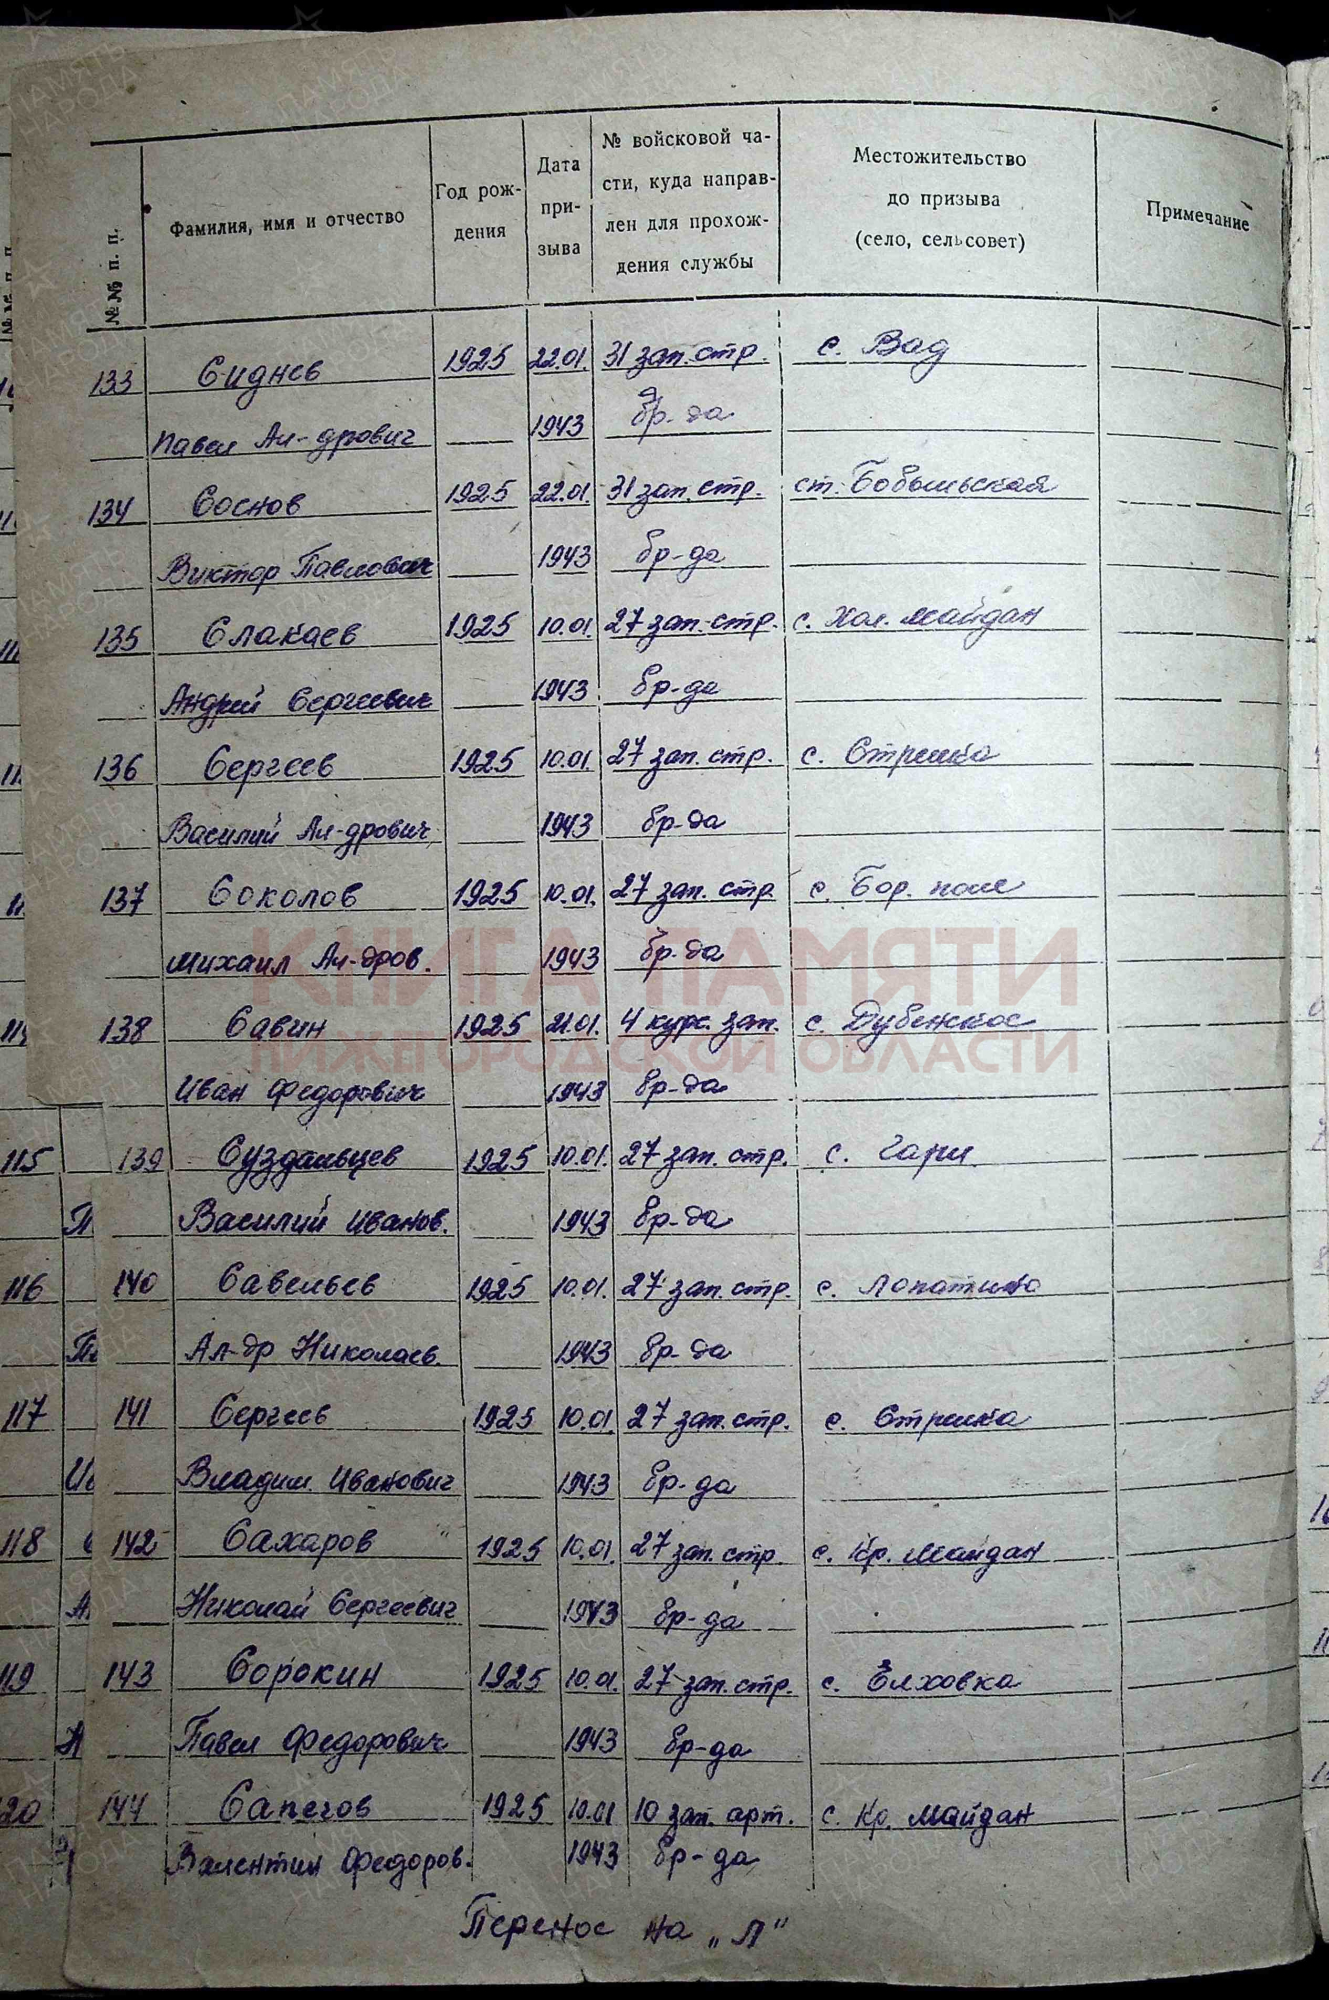 №№ п. п.
Фамилия, имя и отчество
Год рож-
дения
Дата
при-
зыва
№ войсковой ча-
сти, куда направ-
лен для прохож-
дения службы
Местожительство
до призыва
(село, сельсовет)
Примечание
133 Сиднев 1925 22.01. 31 зап. стр. с. Вад
Павел Ал-дрович 1943 бр-да
134 Соснов 1925 22.01. 31 зап. стр. ст. Бобыльская
Виктор Павлович 1943 бр-да
135 Слакаев 1925 10.01. 27 зап. стр. с. Хол. Майдан
Андрей Сергеевич 1943 бр-да
136 Сергеев 1925 10.01. 27 зап. стр. с. Стрелка
Василий Ал-дрович 1943 бр-да
137 Соколов 1925 10.01. 27 зап. стр. с. Бор. поле
Михаил Ал-дров. 1943 бр-да
КНИГА ПАМЯТИ
138 Савин 1925 21.01. 4 курс. зап. с. Дубенское
НИЖЕГОРОДСКОЙ ОБЛАСТИ
Иван Федорович 1943 бр-да
115 139 Суздальцев 1925 10.01. 27 зап. стр. с. Гари.
Василий Иванов. 1943 бр-да
116 140 Савельев 1925 10.01. 27 зап. стр. с. Лопатино
Ал-др Николаев. 1943 бр-да
117 141 Сергеев 1925 10.01. 27 зап. стр. с. Стрелка
Владим. Иванович 1943 бр-да
118 142 Сахаров 1925 10.01. 27 зап. стр. с. Кр. Майдан
Николай Сергеевич 1943 бр-да
119 143 Сорокин 1925 10.01. 27 зап. стр. с. Елховка
Павел Федорович 1943 бр-да
144 Сапегов 1925 10.01 10 зап. арт. с. Кр. Майдан
Валентин Федоров. 1943 бр-да
Перенос на „Л"